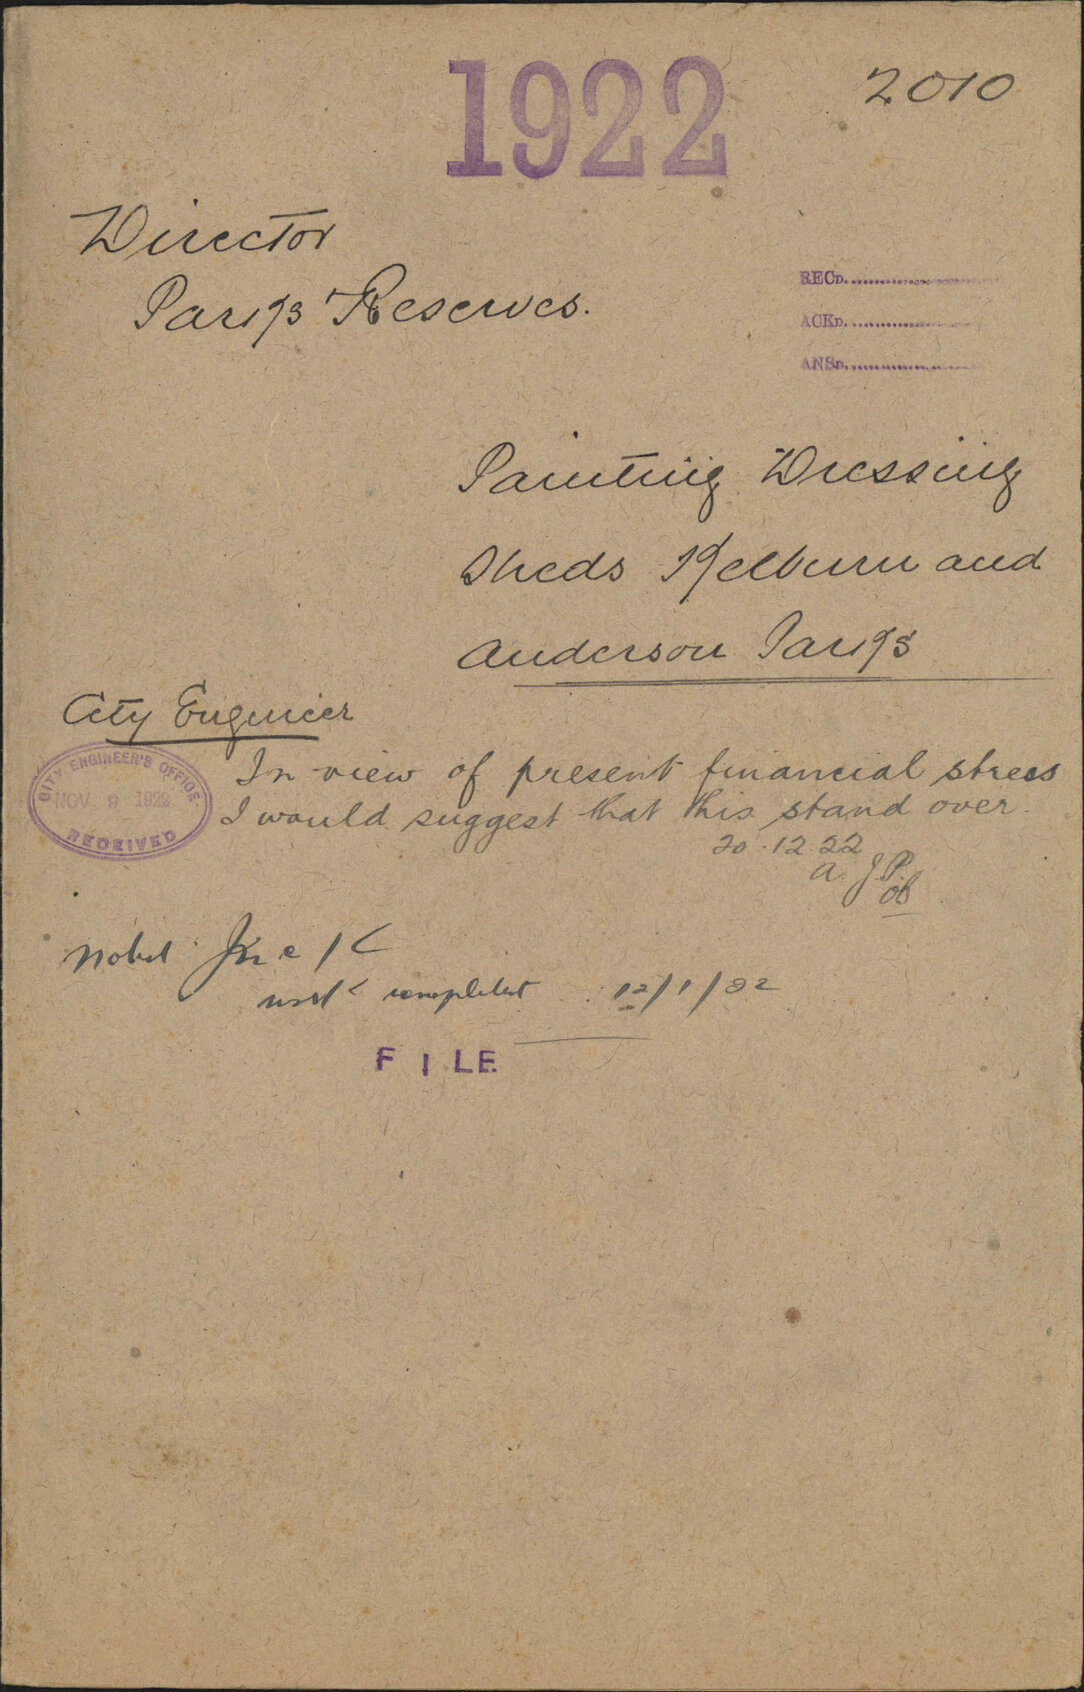 1922
2010
Director
Parks Reserves.
RECD.
ACKD.
ANSD.
Painting Dressing
Sheds Kelburn and
Anderson Parks
City Engineer
CITY ENGINEER'S OFFICE
NOV 9 1922
RECEIVED
In view of present financial stress
I would suggest that this stand over
20.12.22
a. J. P.
Noted
work completed
FILE